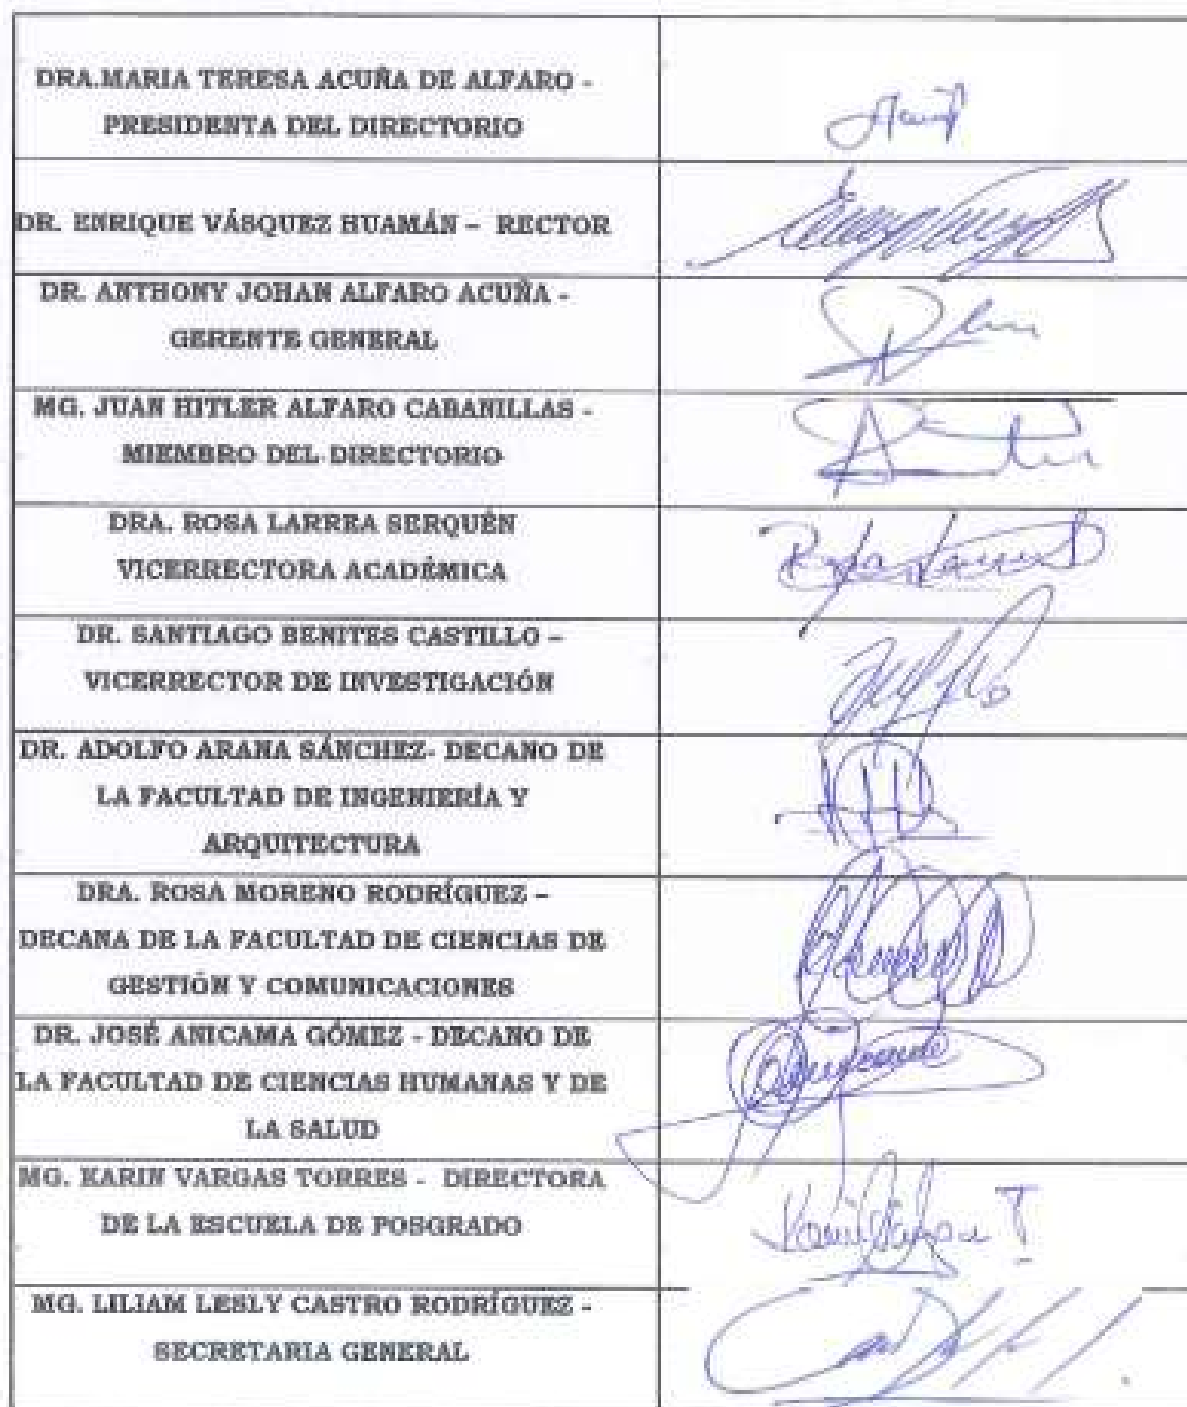 DRA.MARIA TERESA ACUÑA DE ALFARO -
PRESIDENTA DEL DIRECTORIO
DR. ENRIQUE VÁSQUEZ HUAMÁN – RECTOR
DR. ANTHONY JOHAN ALFARO ACUÑA -
GERENTE GENERAL
MG. JUAN HITLER ALFARO CABANILLAS -
MIEMBRO DEL DIRECTORIO
DRA. ROSA LARREA SERQUÉN
VICERRECTORA ACADÉMICA
DR. SANTIAGO BENITES CASTILLO –
VICERRECTOR DE INVESTIGACIÓN
DR. ADOLFO ARANA SÁNCHEZ- DECANO DE
LA FACULTAD DE INGENIERÍA Y
ARQUITECTURA
DRA. ROSA MORENO RODRÍGUEZ –
DECANA DE LA FACULTAD DE CIENCIAS DE
GESTIÓN Y COMUNICACIONES
DR. JOSÉ ANICAMA GÓMEZ - DECANO DE
LA FACULTAD DE CIENCIAS HUMANAS Y DE
LA SALUD
MG. KARIN VARGAS TORRES - DIRECTORA
DE LA ESCUELA DE POSGRADO
MG. LILIAM LESLY CASTRO RODRÍGUEZ -
SECRETARIA GENERAL